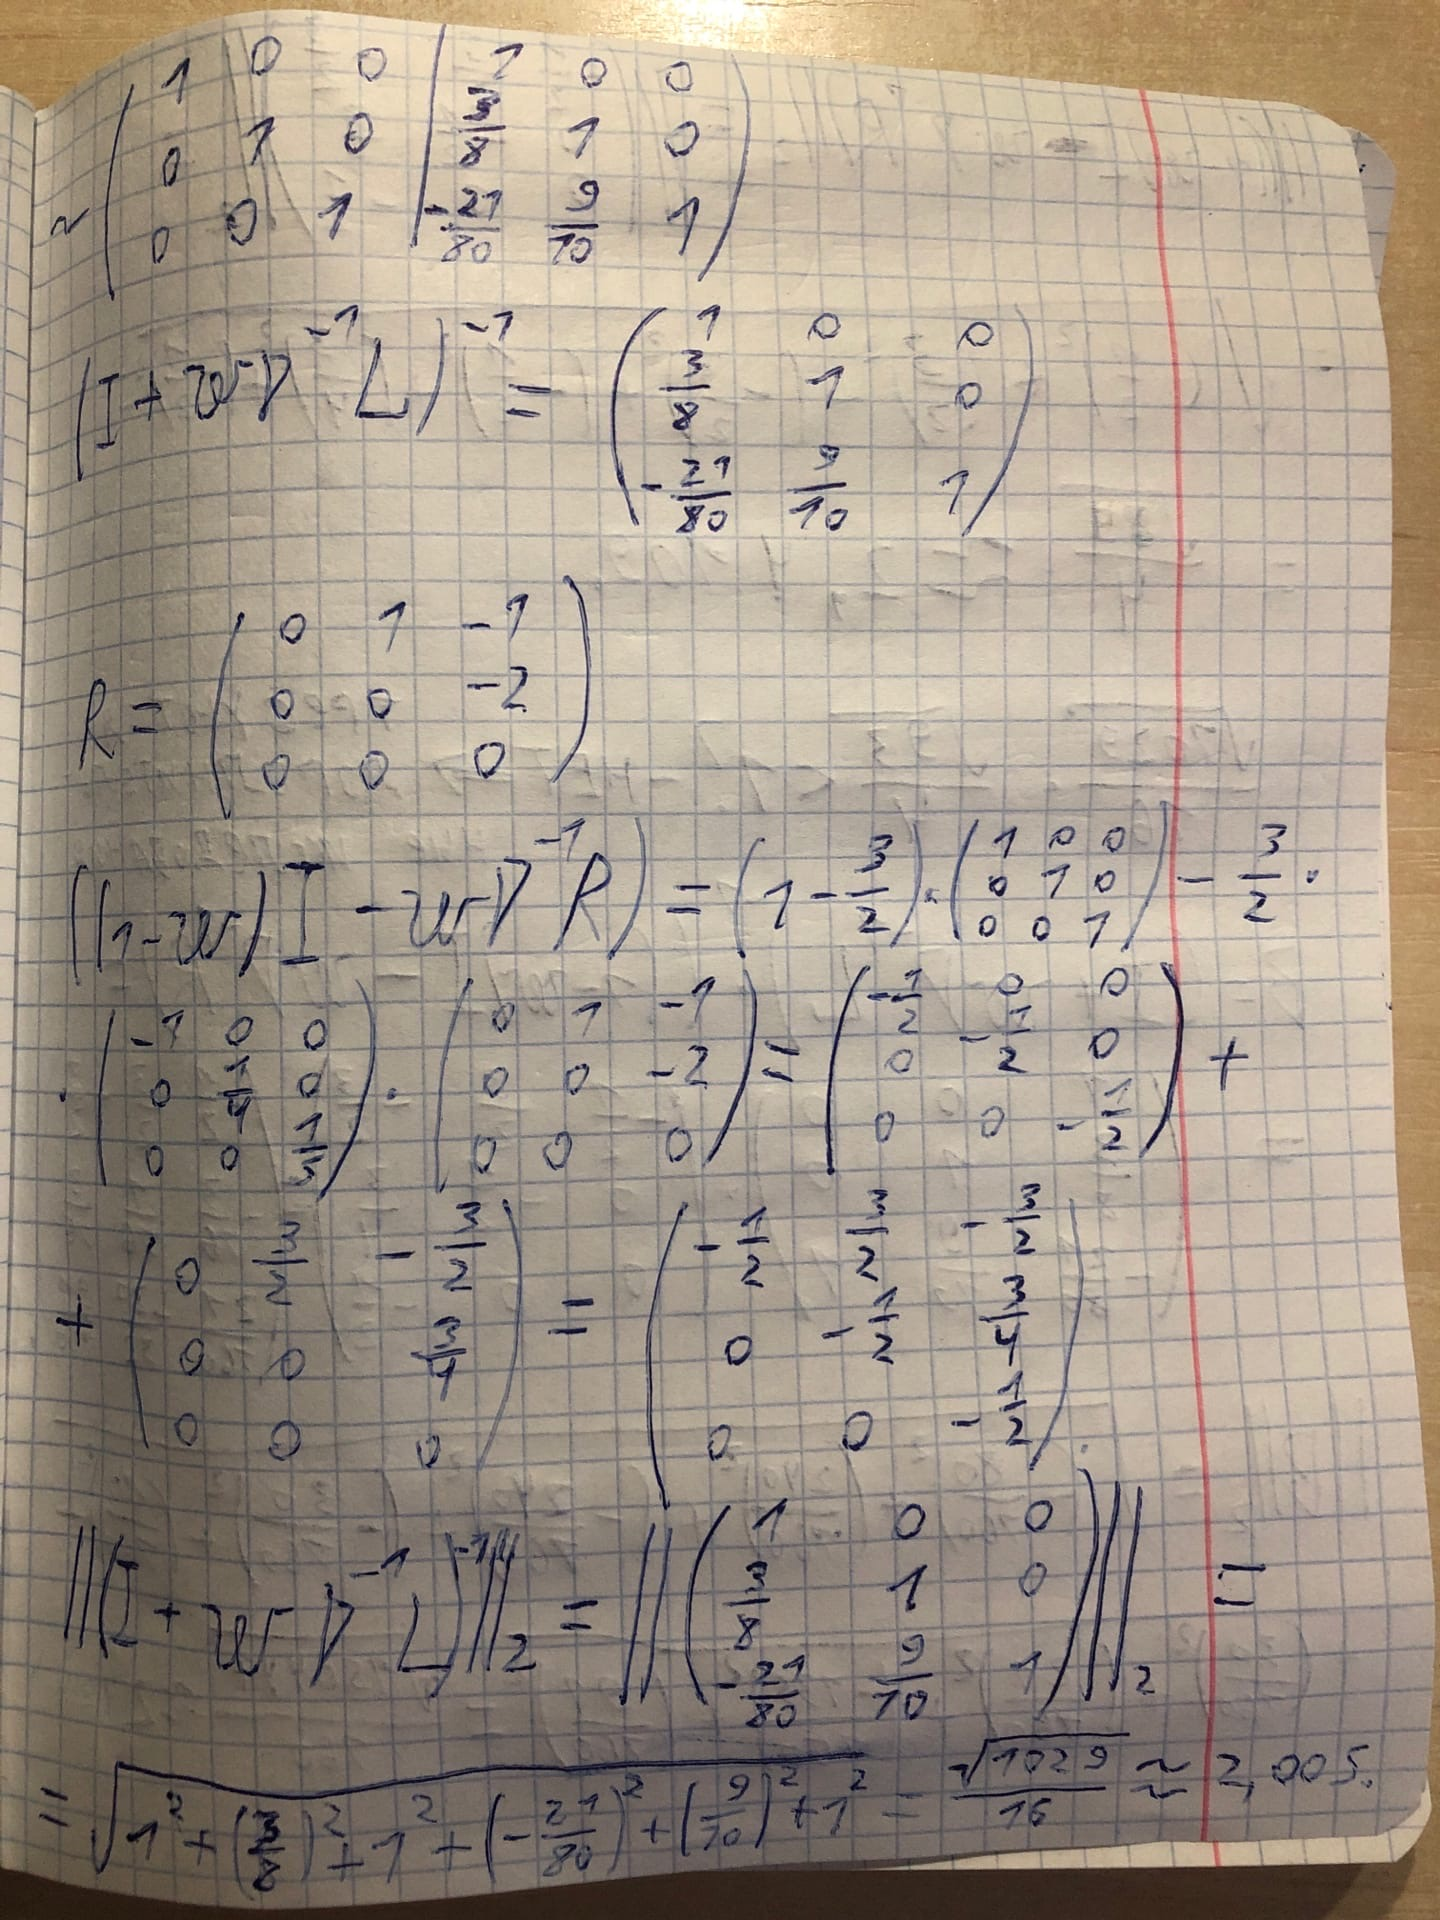 ~ ( 1 0 0 | 1 0 0
0 1 0 | 3/8 1 0
0 0 1 | -21/80 9/10 1 )
(I + wD^-1 L)^-1 = ( 1 0 0
3/8 1 0
-21/80 9/10 1 )
R = ( 0 1 -1
0 0 -2
0 0 0 )
((1-w)I - wD^-1 R) = (1 - 3/2) · ( 1 0 0
0 1 0
0 0 1 ) - 3/2 ·
· ( -1 0 0
0 1/4 0
0 0 1/5 ) · ( 0 1 -1
0 0 -2
0 0 0 ) = ( -1/2 0 0
0 -1/2 0
0 0 -1/2 ) +
+ ( 0 3/2 -3/2
0 0 3/4
0 0 0 ) = ( -1/2 3/2 -3/2
0 -1/2 3/4
0 0 -1/2 ).
||(I + wD^-1 L)^-1||_2 = || ( 1 0 0
3/8 1 0
-21/80 9/10 1 ) ||_2 =
= √(1^2 + (3/8)^2 + 1^2 + (-21/80)^2 + (9/10)^2 + 1^2) = √1029/16 ≈ 2,005.